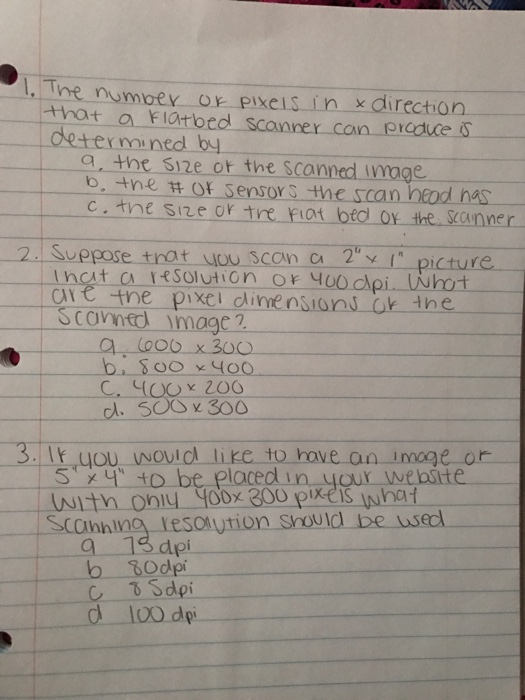 1. The number of pixels in x direction
that a flatbed scanner can produce is
determined by
a. the size of the scanned image
b. the # of sensors the scan head has
c. the size of the flat bed of the scanner
2. Suppose that you scan a 2" x 1" picture
inat a resolution of 400 dpi. What
are the pixel dimensions of the
scanned image?
a. 600 x 300
b. 800 x 400
c. 400 x 200
d. 500 x 300
3. If you would like to have an image of
5" x 4" to be placed in your website
with only 400x300 pixels what
scanning resolution should be used
a 75 dpi
b 80dpi
c 85dpi
d 100 dpi